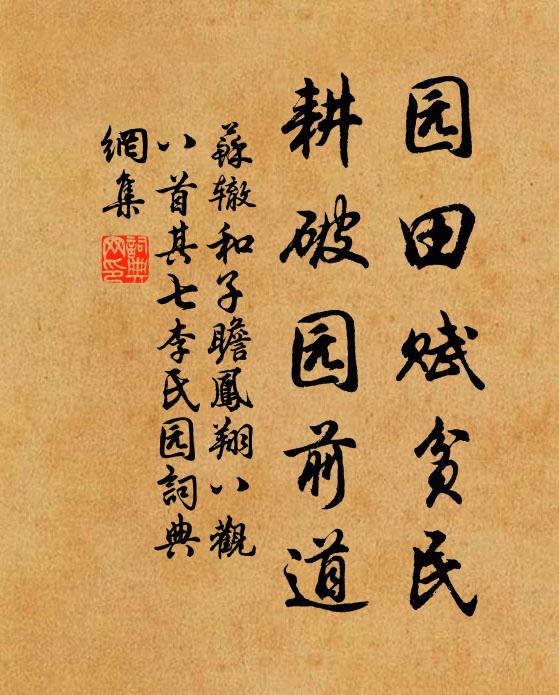 园田赋贫民
耕破园前道
蘇辙和子瞻鳳翔八觀
八首其七李民园詞典
網集
詞典网印